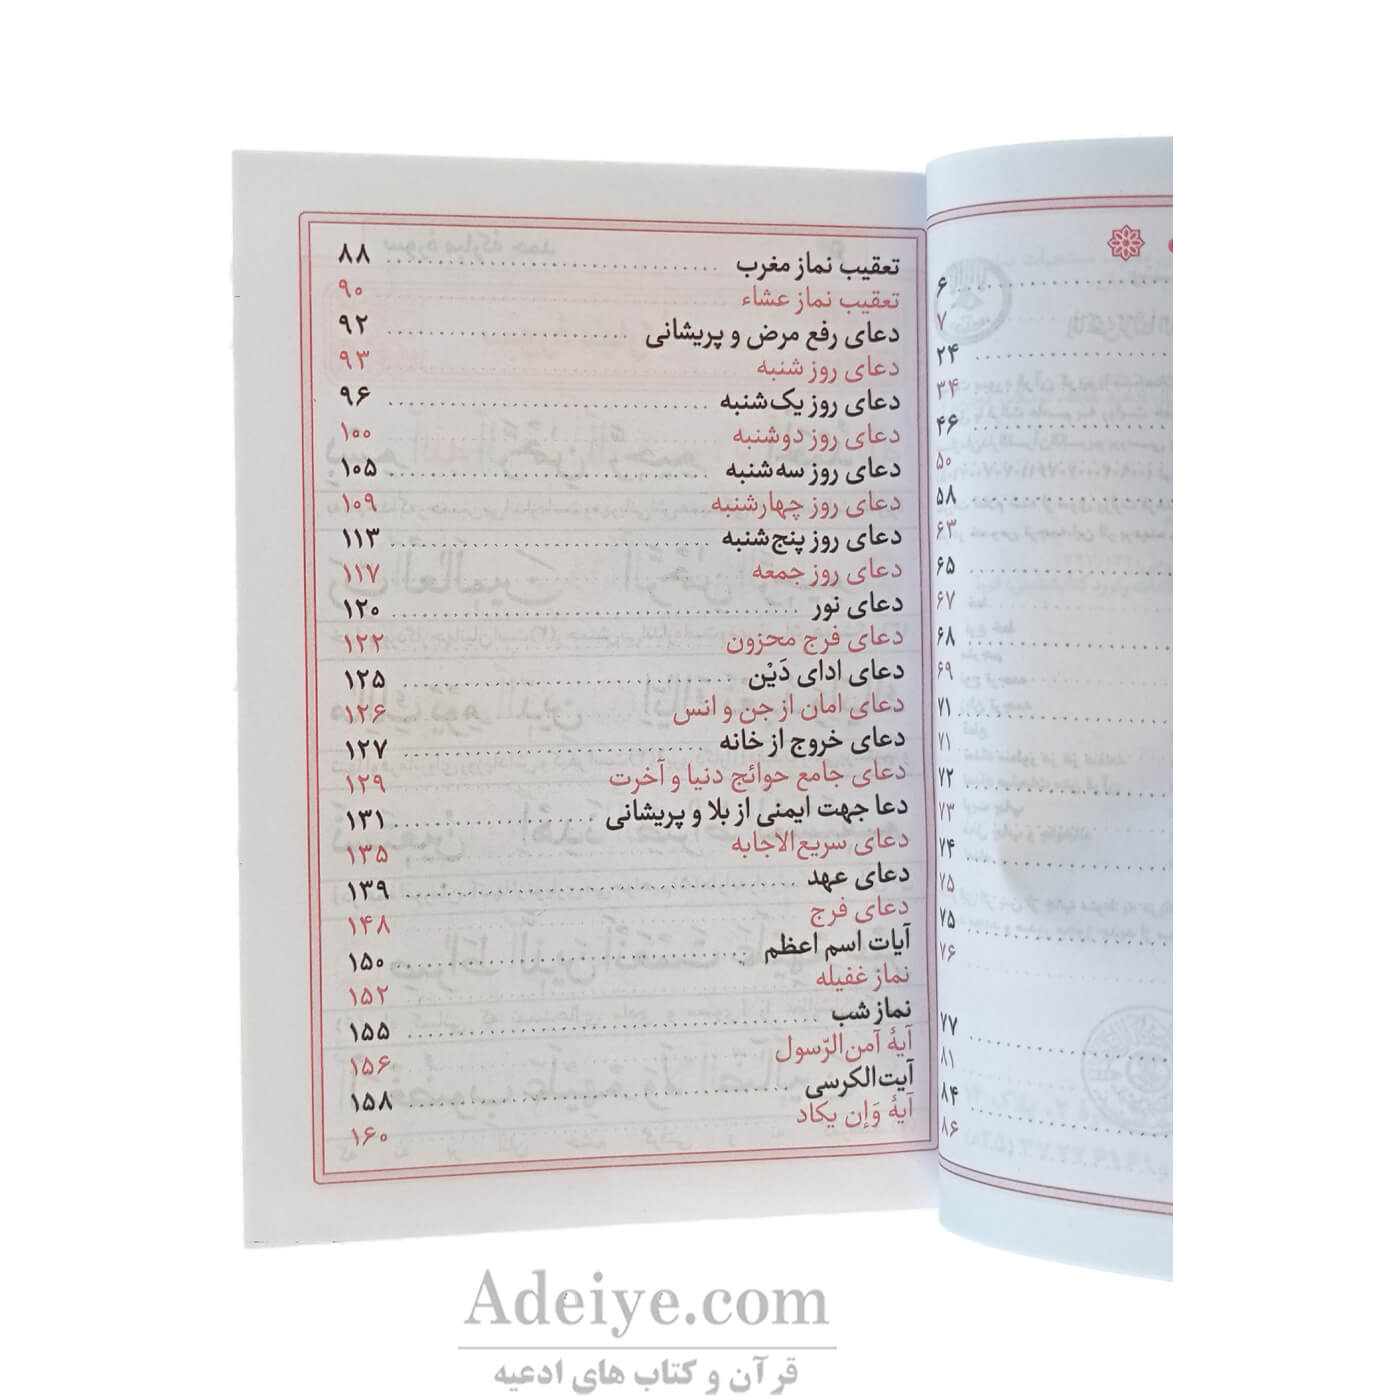 ۶
۷
۲۴
۳۴
۴۶
۵۰
۵۸
۶۳
۶۵
۶۷
۶۸
۶۹
۷۱
۷۱
۷۲
۷۳
۷۴
۷۵
۷۵
۷۶
۷۷
۸۱
۸۴
۸۶
تعقیب نماز مغرب ........ ۸۸
تعقیب نماز عشاء ........ ۹۰
دعای رفع مرض و پریشانی ........ ۹۲
دعای روز شنبه ........ ۹۳
دعای روز یک‌شنبه ........ ۹۶
دعای روز دوشنبه ........ ۱۰۰
دعای روز سه‌شنبه ........ ۱۰۵
دعای روز چهارشنبه ........ ۱۰۹
دعای روز پنج‌شنبه ........ ۱۱۳
دعای روز جمعه ........ ۱۱۷
دعای نور ........ ۱۲۰
دعای فرج محزون ........ ۱۲۲
دعای ادای دَیْن ........ ۱۲۵
دعای امان از جن و انس ........ ۱۲۶
دعای خروج از خانه ........ ۱۲۷
دعای جامع حوائج دنیا و آخرت ........ ۱۲۹
دعا جهت ایمنی از بلا و پریشانی ........ ۱۳۱
دعای سریع‌الاجابه ........ ۱۳۵
دعای عهد ........ ۱۳۹
دعای فرج ........ ۱۴۸
آیات اسم اعظم ........ ۱۵۰
نماز غفیله ........ ۱۵۲
نماز شب ........ ۱۵۵
آیهٔ آمن‌الرّسول ........ ۱۵۶
آیت‌الکرسی ........ ۱۵۸
آیهٔ وَإن یکاد ........ ۱۶۰
Adeiye.com
قرآن و کتاب های ادعیه